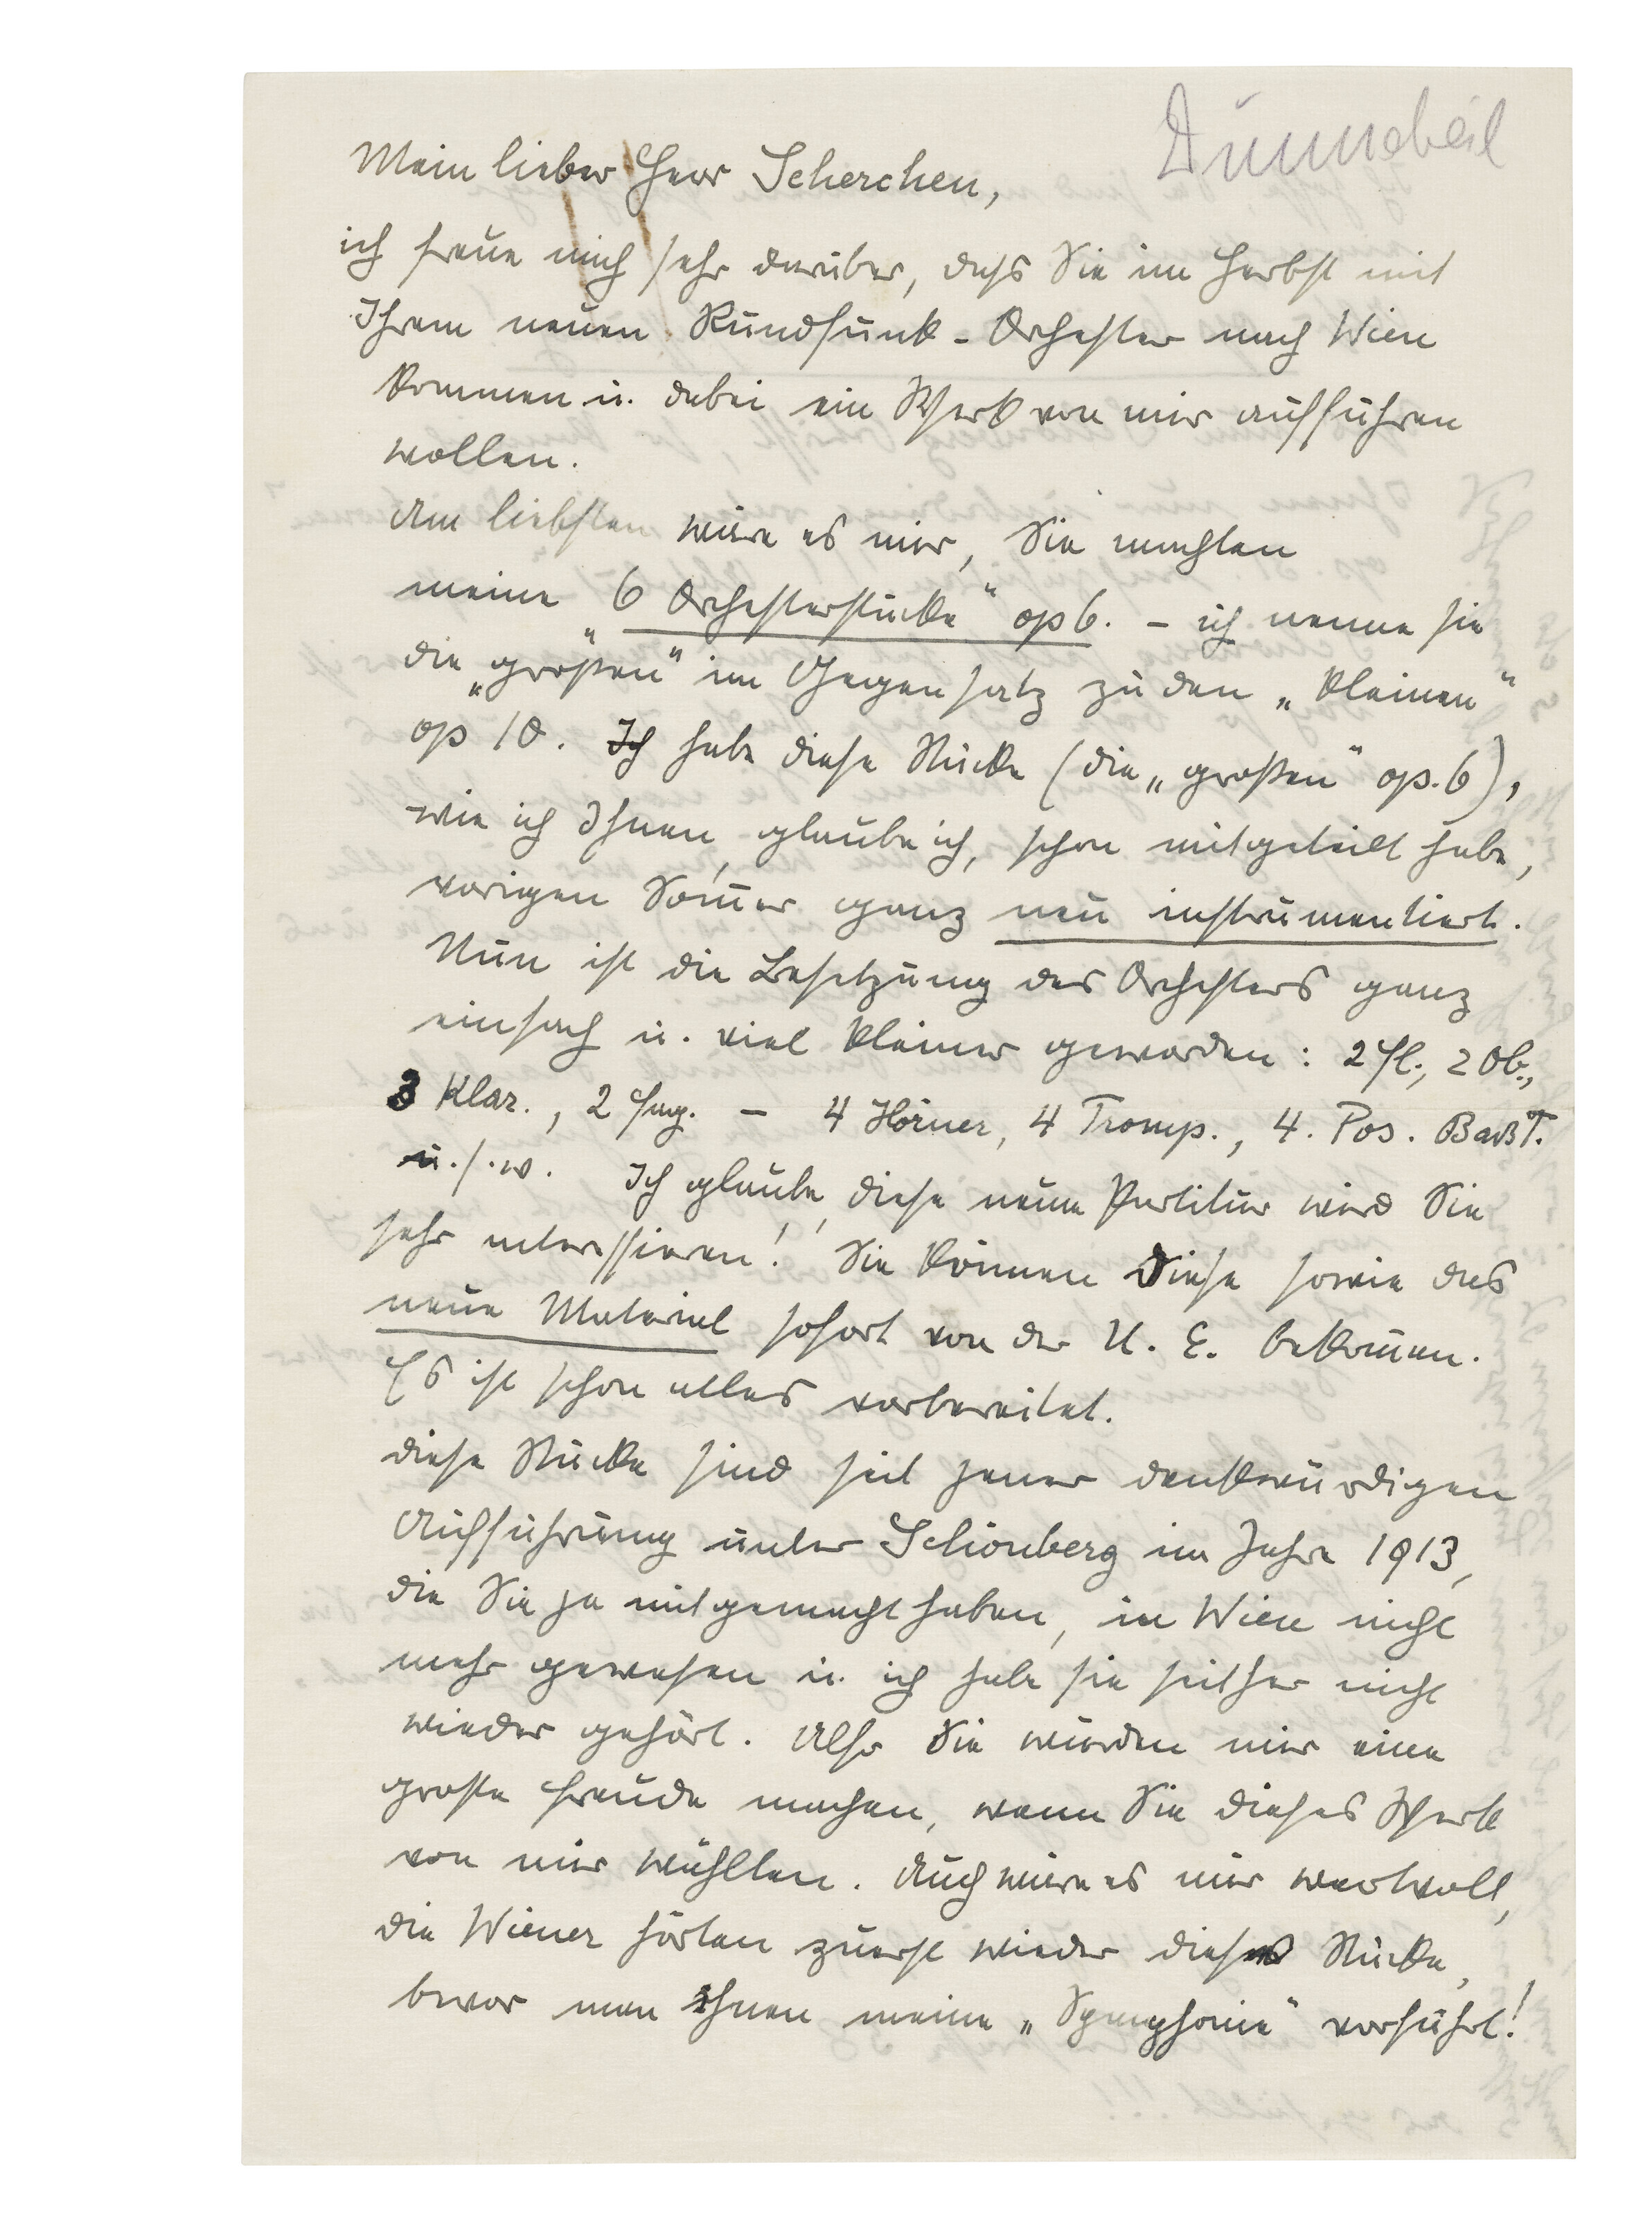 Dünnebeil
Mein lieber Herr Scherchen,
ich freue mich sehr darüber, daſs Sie im Herbst mit
Ihrem neuen Rundfunk-Orchester nach Wien
kommen u. dabei ein Werk von mir aufführen
wollen.
Am liebsten wäre es mir, Sie machten
meine „6 Orchesterstücke“ op 6. – ich nenne sie
die „großen“ im Gegensatz zu den „kleinen“
op 10. Ich habe diese Stücke (die „großen“ op. 6),
wie ich Ihnen, glaube ich, schon mitgeteilt habe,
vorigen Som̅er ganz neu instrumentiert.
Nun ist die Besetzung des Orchesters ganz
einfach u. viel kleiner geworden: 2 Fl., 2 Ob.,
3 Klar., 2 Fag. – 4 Hörner, 4 Tromp., 4. Pos. BaßT.
u.s.w. Ich glaube, diese neue Partitur wird Sie
sehr interessieren! Sie können diese sowie das
neue Material sofort von der U. E. bekom̅en.
Es ist schon alles vorbereitet.
Diese Stücke sind seit jener denkwürdigen
Aufführung unter Schönberg im Jahre 1913,
die Sie ja mitgemacht haben, in Wien nicht
mehr gewesen u. ich habe sie seither nicht
wieder gehört. Also Sie würden mir eine
große Freude machen, wenn Sie dieses Werk
von mir wählten. Auch wäre es mir wertvoll,
die Wiener hörten zuerst wieder diese Stücke,
bevor man ihnen meine „Symphonie“ vorführt!